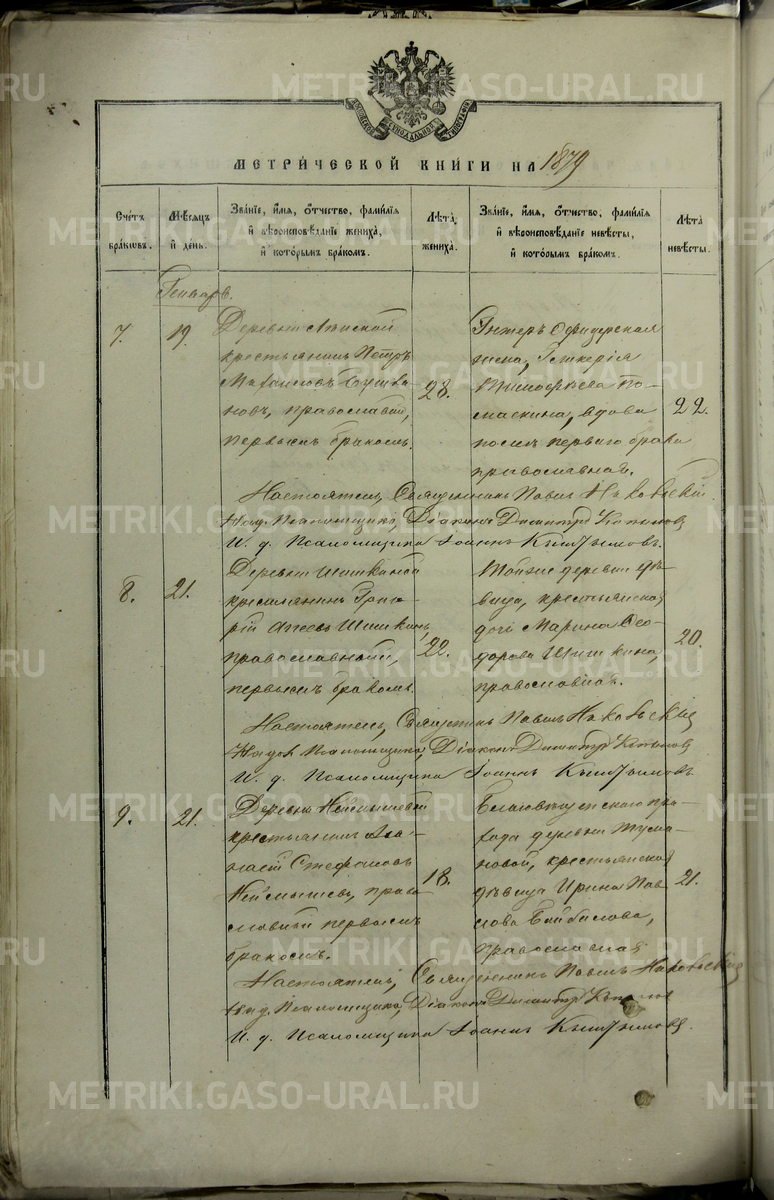 МЕТРИ́ЧЕСКОЙ КНИ́ГИ НА 1879
Сче́тъ бра́ковъ.
Мѣ́сяцъ и҆ день.
Зва́нїе, и҆́мя, ѻ҆́тчество, фами́лїя и҆ вѣроисповѣ́данїе жениха̀, и҆ кото́рымъ бра́комъ.
Лѣ́та̀ жениха̀.
Зва́нїе, и҆́мя, ѻ҆́тчество, фами́лїя и҆ вѣроисповѣ́данїе невѣ́сты, и҆ кото́рымъ бра́комъ.
Лѣ́та̀ невѣ́сты.
Генварь.
7.
19.
Деревни
крестьянинъ Петръ
Михаиловъ
новъ, православный,
первымъ бракомъ.
28.
Унтеръ Офицерская
жена, Гликерія
Тимофеева По-
маскина, вдова
послѣ перваго брака
православная.
22.
Настоятель, Священникъ Павелъ
Псаломщика, Діаконъ Димитрій
И. д. Псаломщика Іоаннъ Кыштымовъ.
8.
21.
Деревни Шишкиной
крестьянинъ Григо-
рій Шишкинъ,
православный,
первымъ бракомъ.
22.
Тойже деревни дѣ-
вица, крестьянская
дочь Марина Ѳео-
дорова Шишкина,
православная.
20.
Настоятель, Священникъ Павелъ
Псаломщика, Діаконъ Димитрій
И. д. Псаломщика Іоаннъ Кыштымовъ.
9.
21.
Деревни Неймышевой
крестьянинъ Аѳа-
насій Стефановъ
Неймышевъ, право-
славный первымъ
бракомъ.
18.
при-
хода деревни Тума-
новой, крестьянская
дѣвица Ирина Пав-
лова
православная
21.
Настоятель, Священникъ Павелъ
Псаломщика, Діаконъ Димитрій
И. д. Псаломщика Іоаннъ Кыштымовъ.
METRIKI.GASO-URAL.RU